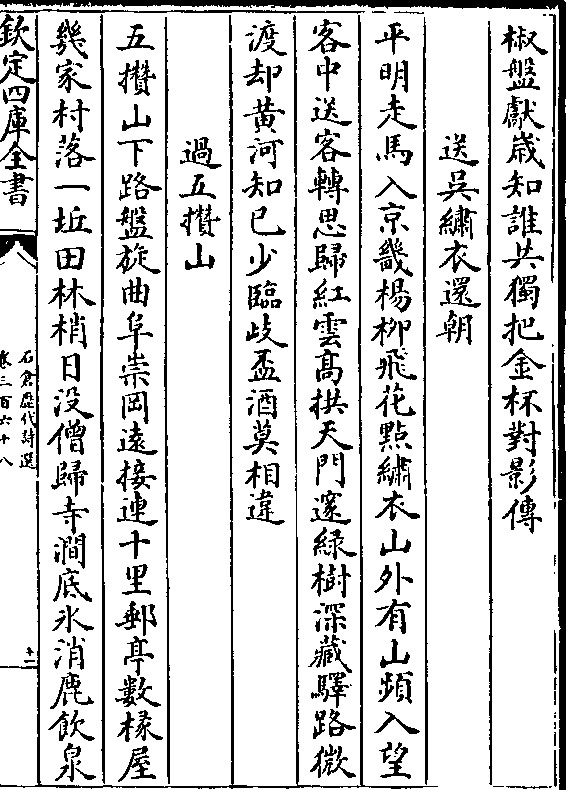 椒盤獻歲知誰共獨把金杯對影傳
送吳繡衣還朝
平明走馬入京畿楊柳飛花點繡衣山外有山頻入望
客中送客轉思歸紅雲高拱天門邃綠樹深藏驛路微
渡却黃河知已少臨歧盃酒莫相違
過五攢山
五攢山下路盤旋曲阜崇岡遠接連十里郵亭數椽屋
幾家村落一坵田林梢日没僧歸寺澗底氷消鹿飲泉
欽定四庫全書
石倉歷代詩選
卷三百六十八
十二